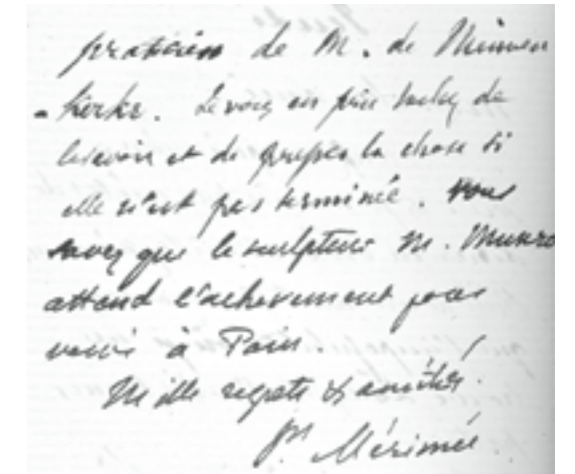 praticien de M. de Nieuwer
-kerke. Je vous en prie tachez de
le savoir et de presser la chose si
elle n'est pas terminée. Vous
savez que le sculpteur M. Munro
attend l'achevement pour
venir à Paris.
Mille regrets & amitiés.
Pr Mérimée